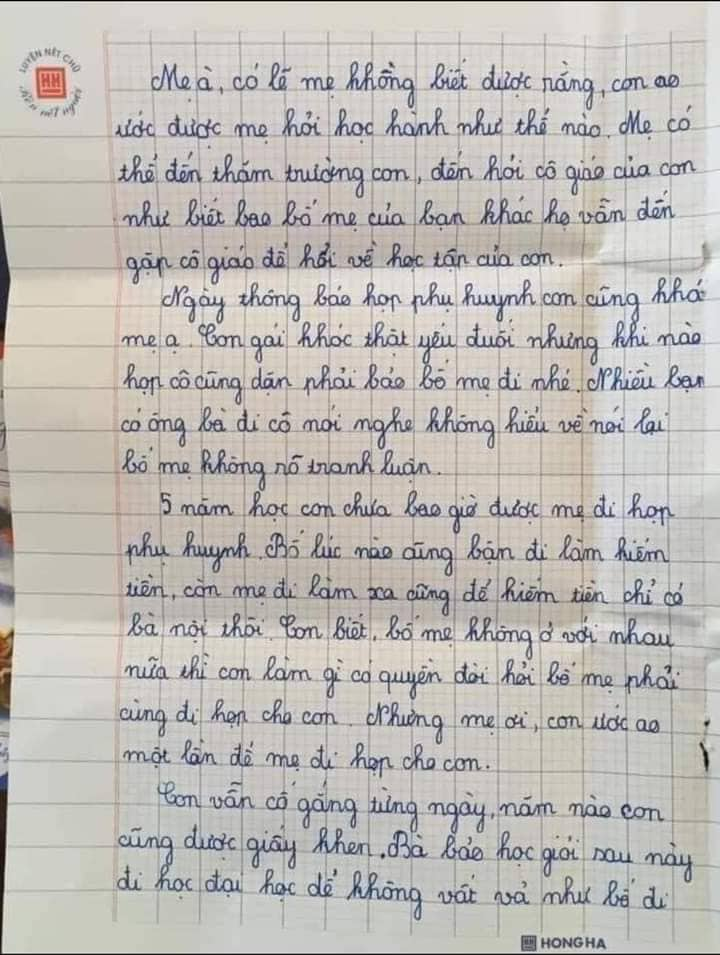 LUYỆN NÉT CHỮ
HH
RÈN NẾT NGƯỜI
Mẹ à, có lẽ mẹ không biết được rằng, con ao
ước được mẹ hỏi học hành như thế nào. Mẹ có
thể đến thăm trường con, đến hỏi cô giáo của con
như biết bao bố mẹ của bạn khác họ vẫn đến
gặp cô giáo để hỏi về học tập của con.
Ngày thông báo họp phụ huynh con cũng khó
mẹ ạ. Con gái khóc thật yếu đuối nhưng khi nào
họp cô cũng dặn phải bảo bố mẹ đi nhé. Nhiều bạn
có ông bà đi cô nói nghe không hiểu về nói lại
bố mẹ không rõ tranh luận.
5 năm học con chưa bao giờ được mẹ đi họp
phụ huynh. Bố lúc nào cũng bận đi làm kiếm
tiền, còn mẹ đi làm xa cũng để kiếm tiền chỉ có
bà nội thôi. Con biết, bố mẹ không ở với nhau
nữa thì con làm gì có quyền đòi hỏi bố mẹ phải
cùng đi họp cho con. Nhưng mẹ ơi, con ước ao
một lần để mẹ đi họp cho con.
Con vẫn cố gắng từng ngày, năm nào con
cũng được giấy khen. Bà bảo học giỏi sau này
đi học đại học để không vất vả như bố đi
HH HONG HA